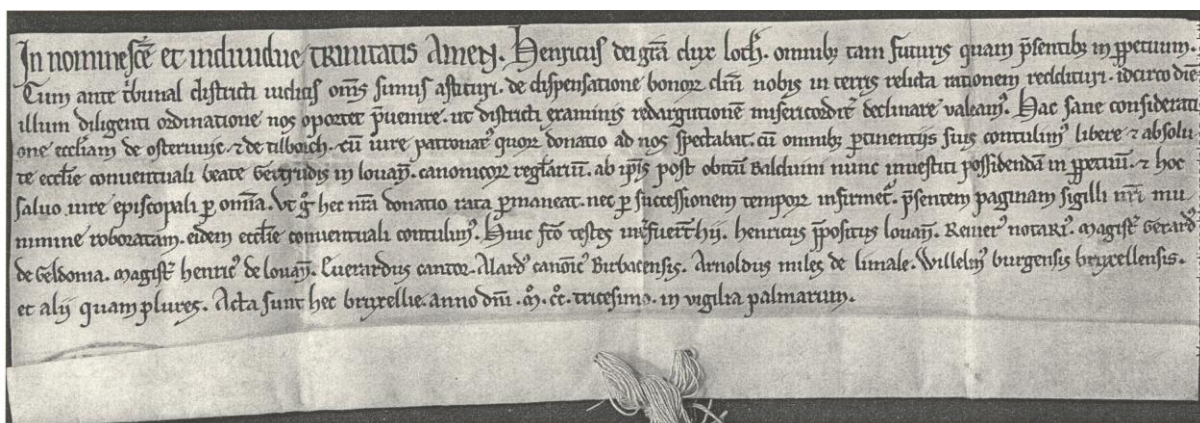 In nomine sc̄e et indiuidue TRINITATIS AMEN. Henricus dei gr̄a dux Loth̄. omnibꝫ tam futuris quam p̄sentibꝫ in ꝑpetuum.
Cum ante t͛bunal districti iudicis om̄s sumus astituri. de dispensatione bonoꝝ dn̄i nobis in terris relicta rationem reddituri. idcirco diē
illum diligenti ordinatione nos oportet p̄uenire. ut districti examinis redargutionē misericordit̄ declinare ualeamꝰ. Hac sane considerati
one eccl̄iam de osterwijc ⁊ de tilborch. cū iure patronatꝰ quoꝝ donatio ad nos spectabat. cū omnibꝫ ꝑtinentijs suis contulimꝰ libere ⁊ absolu
te eccl̄ie conuentuali beate Gertrudis in louan̄. canonicoꝝ regl̄ariū. ab ip̄is post obitū Balduini nunc inuestiti possidendā in ꝑpetuū. ⁊ hoc
saluo iure episcopali ꝑ om̄ia. Vt gͦ hec nr̄a donatio rata ꝑmaneat. nec ꝑ successionem tempoꝝ infirmet᷑. p̄sentem paginam sigilli nr̄i mu
nimine roboratam. eidem eccl̄ie conuentuali contulimꝰ. Huic fc̄o testes int̄fuer̄t hij. henricus p̄positus louan̄. Reinerꝰ notariꝰ. magist̄ Gerardꝰ
de Geldonia. magist̄ henricꝰ de louan̄. Euerardus cantor. Alardꝰ canōic Birbacensis. Arnoldus miles de limale. Willelmꝰ burgensis bruxellensis.
et alij quam plures. Acta sunt hec bruxellie. anno dn̄i .mͦ. ccͦ. tricesimo. in uigilia palmarum.